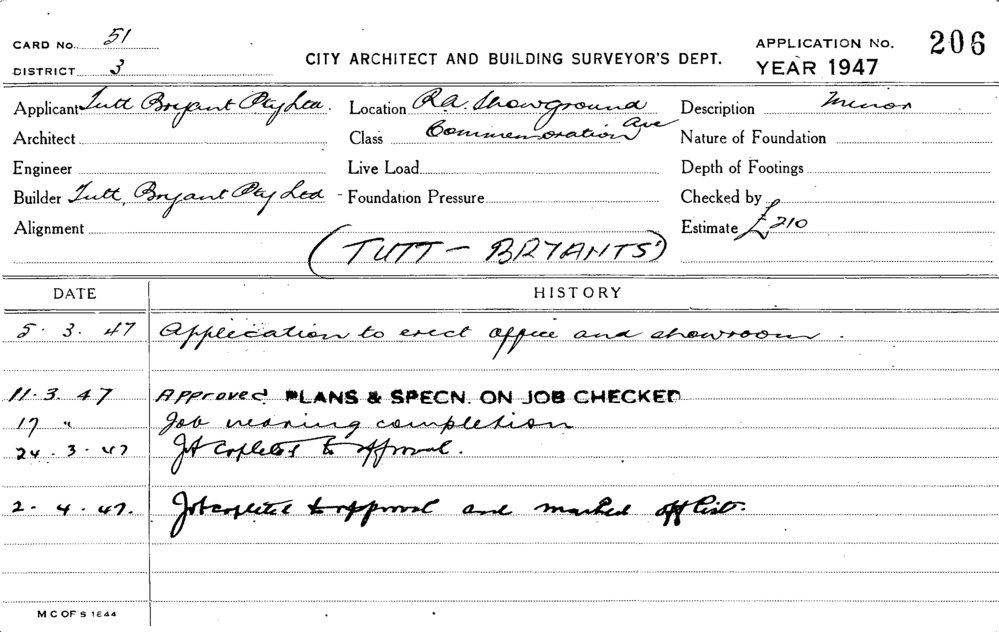 CARD No. 51
DISTRICT 3
CITY ARCHITECT AND BUILDING SURVEYOR'S DEPT.
APPLICATION No. 206
YEAR 1947
Applicant Tutt Bryant Pty Ltd. Location R.A. Showground Description Minor
Architect Class Commemoration Ave Nature of Foundation
Engineer Live Load Depth of Footings
Builder Tutt, Bryant Pty Ltd - Foundation Pressure Checked by
Alignment Estimate £210
(TUTT - BRYANTS')
DATE HISTORY
5. 3. 47 Application to erect office and showroom.
11. 3. 47 Approved PLANS & SPECN. ON JOB CHECKED
17 " Job nearing completion
24. 3. 47 Job copleted to approval.
2. 4. 47. Job copleted to approval and marked off list.
M C OF S 1844